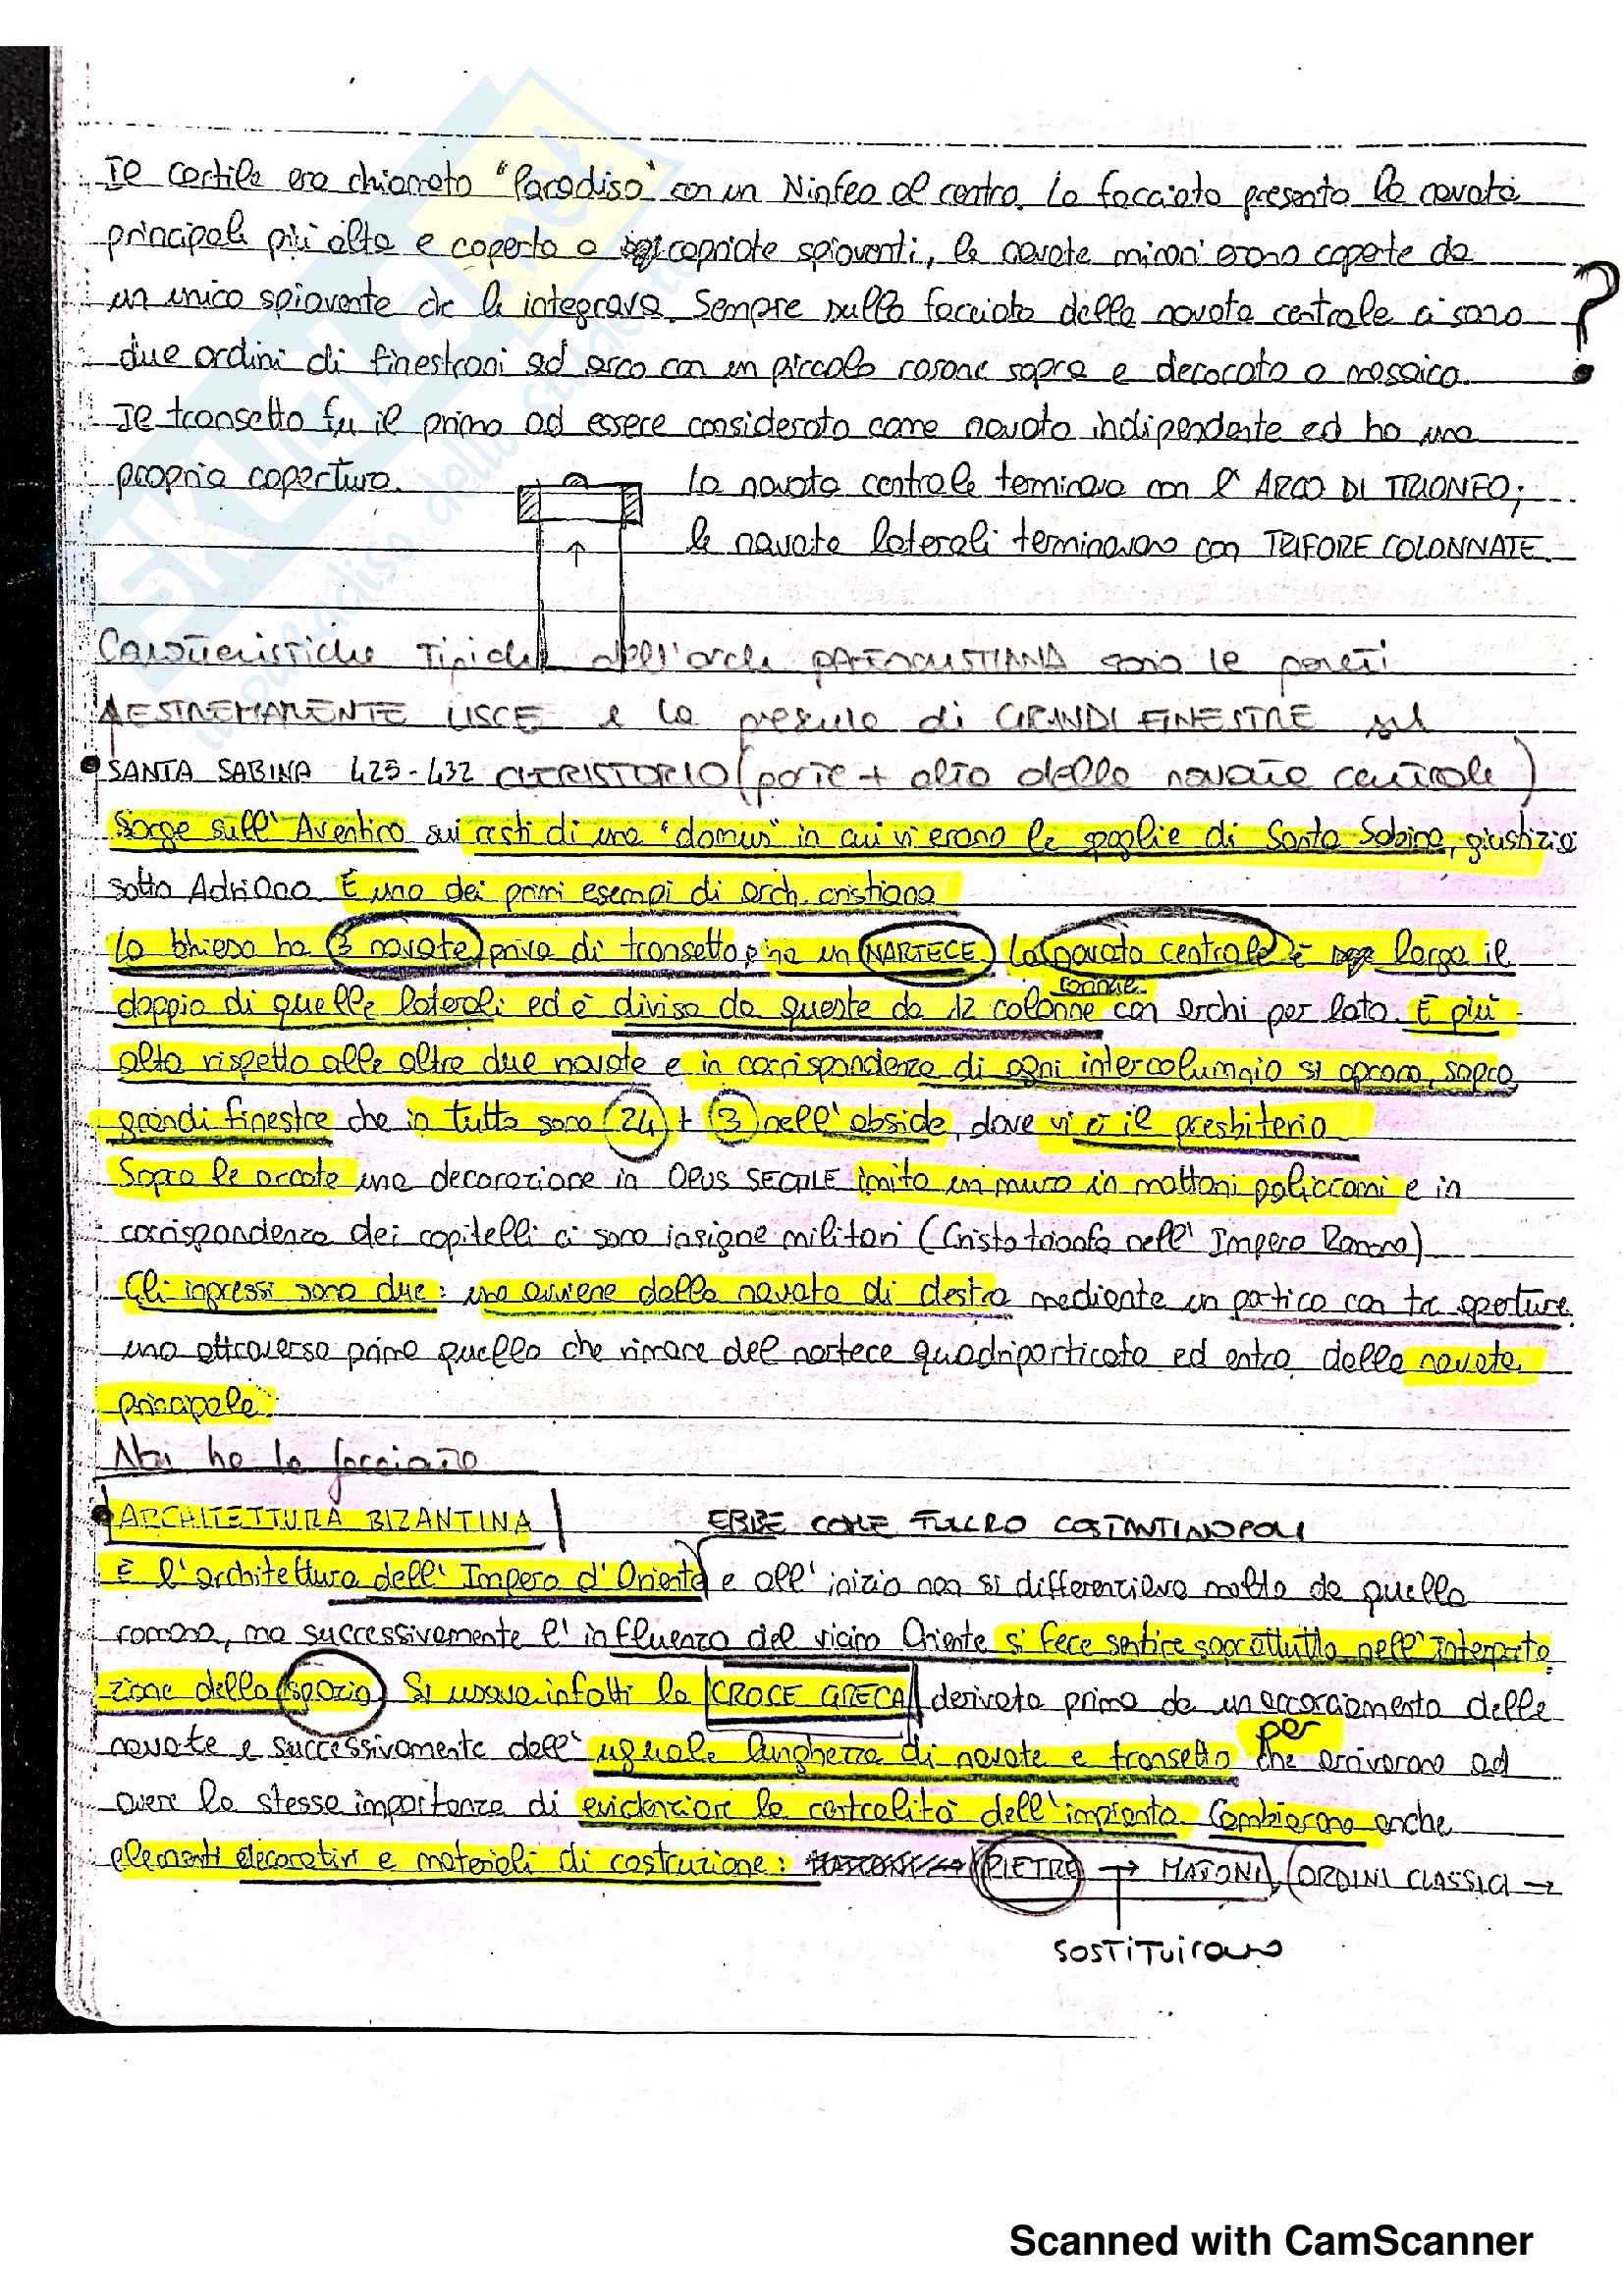 Il cortile era chiamato "Paradiso" con un Ninfeo al centro. La facciata presenta la navata
principale più alta e coperta a capriate spioventi, le navate minori erano coperte da
un unico spiovente che le integrava. Sempre sulla facciata della navata centrale ci sono
?
due ordini di finestroni ad arco con un piccolo rosone sopra e decorata a mosaico.
Il transetto fu il primo ad essere considerato come navata indipendente ed ha una
propria copertura.
La navata centrale terminava con l'ARCO DI TRIONFO;
le navate laterali terminavano con TRIFORE COLONNATE.
Caratteristiche Tipiche dell'arch. PALEOCRISTIANA sono le pareti
ESTREMAMENTE LISCE e la presenza di GRANDI FINESTRE sul
• SANTA SABINA 425-432 CLERISTORIO (parte + alta della navata centrale)
Sorge sull'Aventino sui resti di una "domus" in cui vi erano le spoglie di Santa Sabina, giustizia
sotto Adriano. È uno dei primi esempi di arch. cristiana
La chiesa ha 3 navate, priva di transetto, ha un NARTECE. La navata centrale è larga il
doppio di quelle laterali ed è divisa da queste da 12 colonne con archi per lato. È più
alta rispetto alle altre due navate e in corrispondenza di ogni intercolumnio si aprono, sopra,
grandi finestre che in tutto sono 24 + 3 nell'abside, dove vi è il presbiterio
Sopra le arcate una decorazione in OPUS SECTILE imita un muro in mattoni policromi e in
corrispondenza dei capitelli ci sono insigne militari (Cristo trionfa nell'Impero Romano)
Gli ingressi sono due: uno avviene dalla navata di destra mediante un portico con tre aperture,
uno attraversa prima quello che rimane del nartece quadriporticato ed entra dalla navata
principale.
Non ha la facciata
• ARCHITETTURA BIZANTINA
EBBE COME FULCRO COSTANTINOPOLI
È l'architettura dell'Impero d'Oriente e all'inizio non si differenziava molto da quella
romana, ma successivamente l'influenza del vicino Oriente si fece sentire soprattutto nell'interpreta
zione dello spazio. Si usava infatti la CROCE GRECA derivata prima da un accorciamento delle
navate e successivamente dell'uguale lunghezza di navate e transetto che arrivarono ad
per
avere la stessa importanza di evidenziare la centralità dell'impianto. Cambiarono anche
elementi decorativi e materiali di costruzione: PIETRE → MATONI, (ORDINI CLASSICI →
SOSTITUIRONO
Scanned with CamScanner